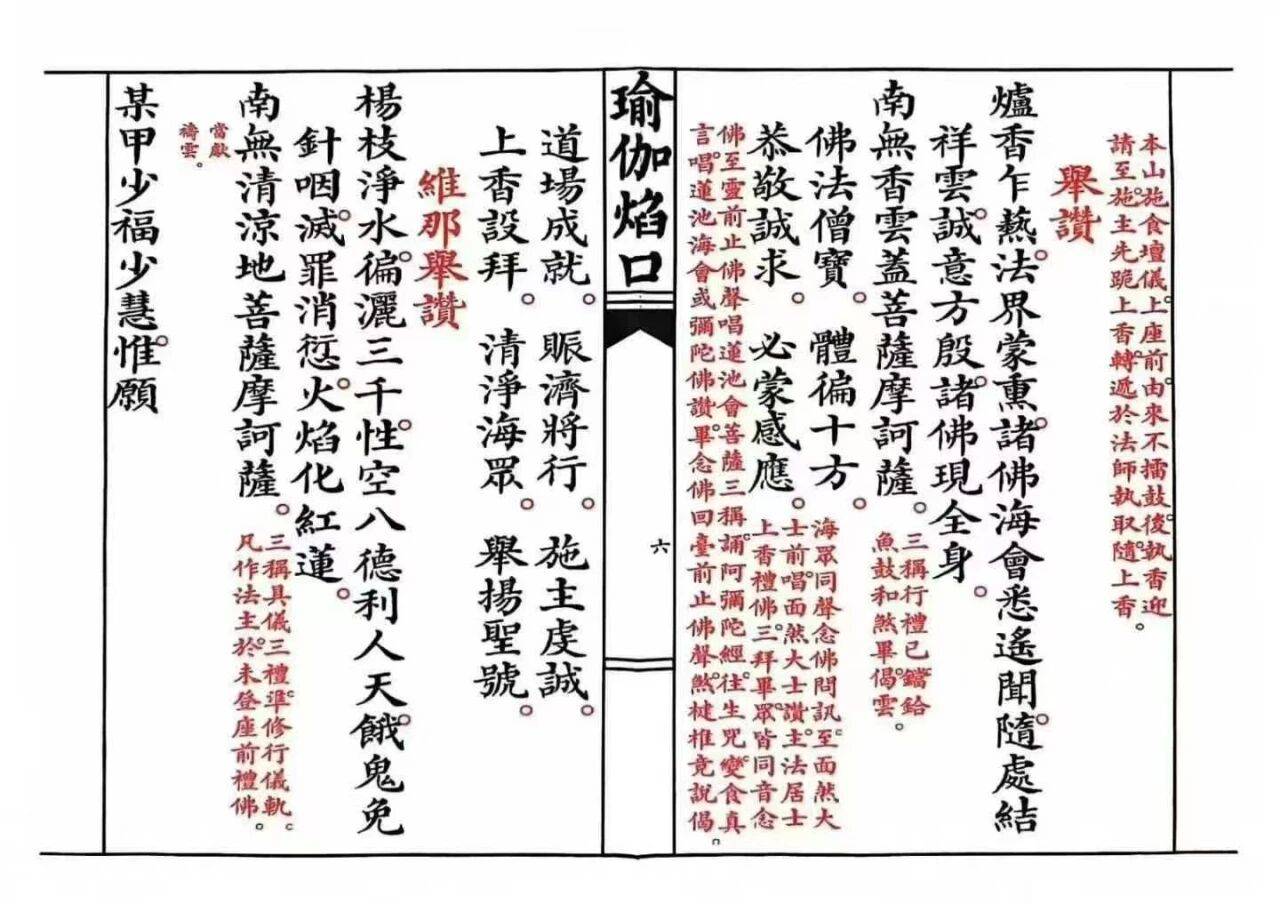 本山施食壇儀。上座前。由來不擂鼓。後執香迎
請至。施主先跪上香。轉遞於法師執取。隨上香。
舉讚
爐香乍爇。法界蒙熏。諸佛海會悉遙聞。隨處結
祥雲。誠意方殷。諸佛現全身。
南無香雲蓋菩薩摩訶薩。
三稱行禮已。鐺鉿
魚鼓和煞畢。偈雲。
佛法僧寶。 體徧十方。
恭敬誠求。 必蒙感應。
海眾同聲念佛問訊。至面然大
士前。唱面然大士讚。主法居士
上香禮佛。三拜畢。眾皆同音念
佛至靈前止佛聲唱蓮池會菩薩三稱。誦阿彌陀經。往生咒。變食真
言。唱蓮池海會或彌陀佛讚畢。念佛回臺前止佛聲。煞楗椎竟說偈。
瑜伽焰口
六
道場成就。 賑濟將行。 施主虔誠。
上香設拜。 清淨海眾。 舉揚聖號。
維那舉讚
楊枝淨水。徧灑三千。性空八德利人天。餓鬼免
針咽。滅罪消愆。火焰化紅蓮。
南無清涼地菩薩摩訶薩。
三稱具儀三禮。準修行儀軌。
凡作法主。於未登座前禮佛。
當獻
禱雲。
某甲少福少慧。惟願